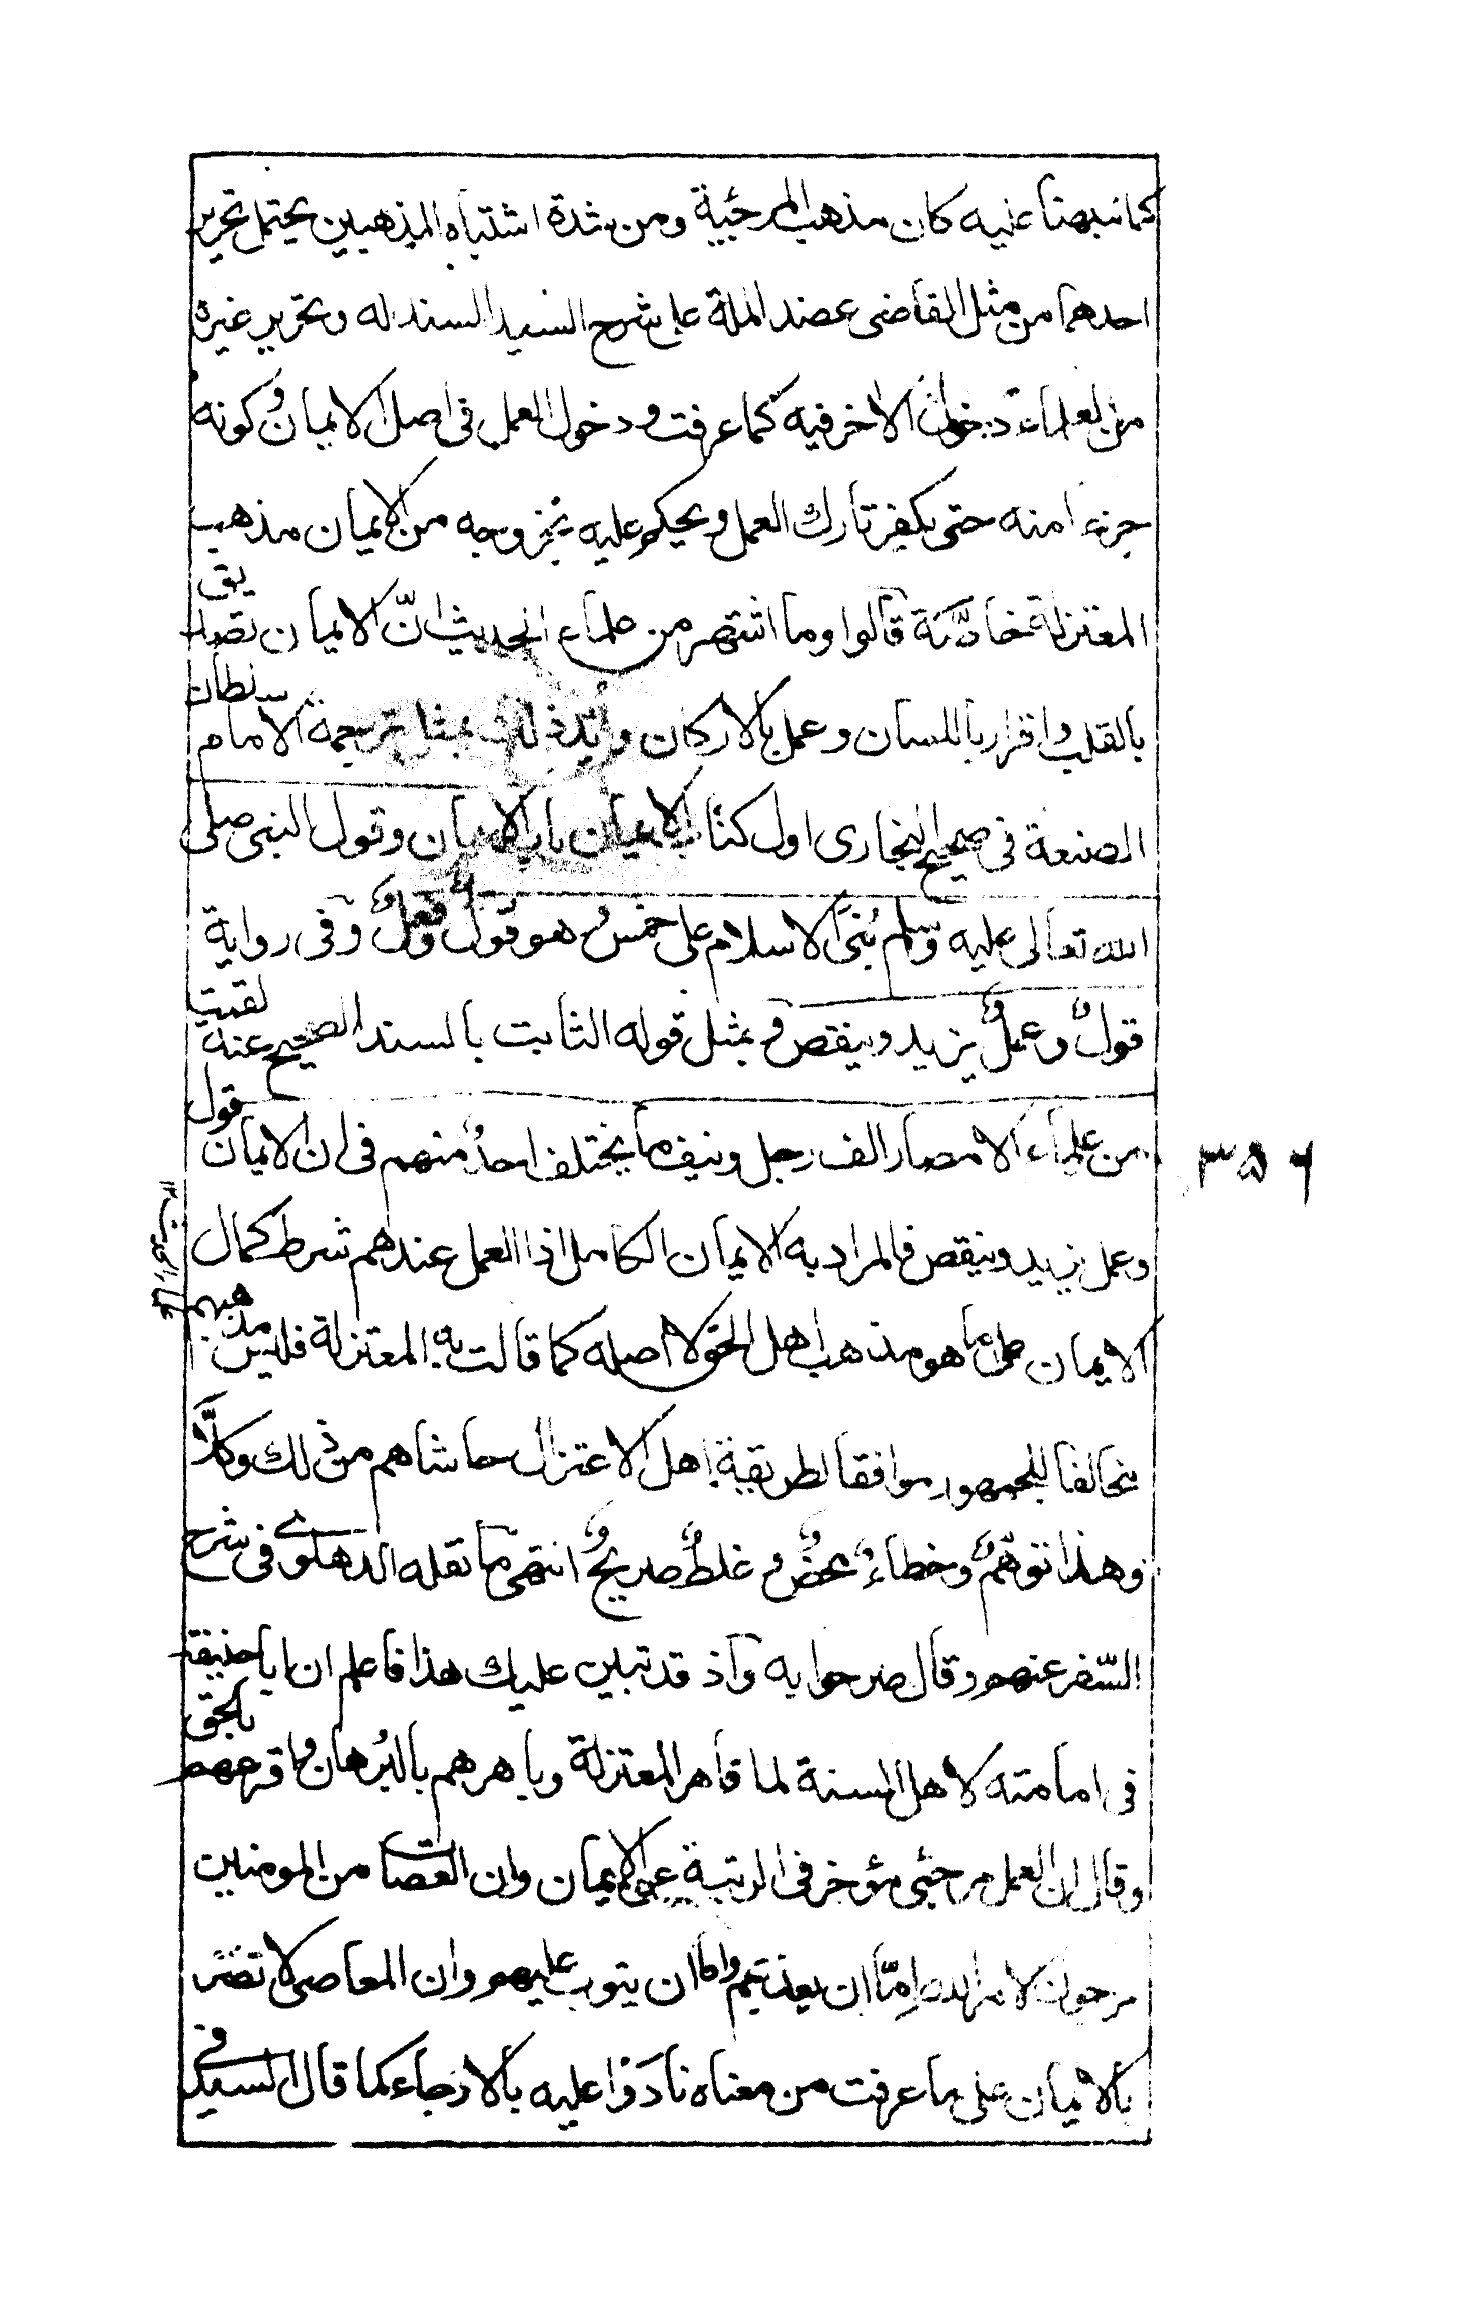 كما نبهنا عليه كان مذهب المرجئية ومن شدة اشتباه المذهبين يحتمل تحرير
احدهما من مثل القاضى عضد الملة على شرح السيد السند له وتحرير غيره
من العلماء دخول الاخر فيه كما عرفت ودخول العمل فى اصل الايمان وكونه
جزء امنه حتى يكفر تارك العمل ويحكم عليه بخروجه من الايمان مذهب
المعتزلة خاصّة قالوا وما اشتهر من علماء الحديث انّ الايمان تصديق
بالقلب واقرار باللسان وعمل بالاركان وايّد ذلك بمثل ترجمة الامام سلطان
الصنعة فى صحيح البخارى اول كتاب الايمان باب الايمان وقول النبى صلى
الله تعالى عليه وسلم بُنىَ الاسلام على خمس وهو قولٌ وفعلٌ وفى رواية
قولٌ وعملٌ يزيد وينقص وبمثل قوله الثابت بالسند الصحيح عنه لقيت
من علماء الامصار الف رجل ونيف ما يختلف احدٌ منهم فى ان الايمان قول
وعمل يزيد وينقص فالمراد به الايمان الكامل اذا العمل عندهم شرط كمال
الايمان على ما هو مذهب اهل الحق لا اصله كما قالت به المعتزلة فليس مذهبهم
مخالفا للجمهور موافقا لطريقة اهل الاعتزال حاشاهم من ذلك وكلَّا
وهذا توهّمٌ وخطاءٌ محضٌ وغلطٌ صريحٌ انتهى ما نقله الدهلوى فى شرح
السّفر عنهم وقال صرحوا به وآذ قد تبين عليك هذا فاعلم ان ابا حنيفة
فى امامته لاهل السنة لما قاهر المعتزلة وباهرهم بالبُرهان واقرعهم بالحق
وقال ان العمل مرجئى مؤخر فى الرتبة عن الايمان وان العصات من المومنين
مرجون لامر الله اِمّا ان يعذبهم واما ان يتوب عليهم وان المعاصى لا تضر
بالايمان على ما عرفت من معناه نادَوْا عليه بالارجاء كما قال السيد فى
٣٥٦